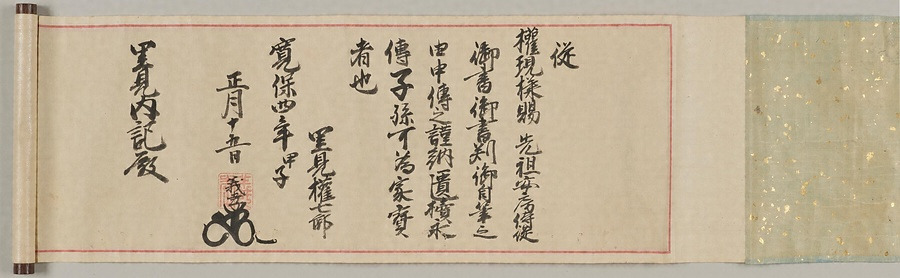 従
權現様賜 先祖安房侍従
御書御書判御自筆之
由申傳之謹納遺櫃永
傳子孫可為家寶
者也
里見權七郎
寛保四年甲子
正月十五日
里見内記殿